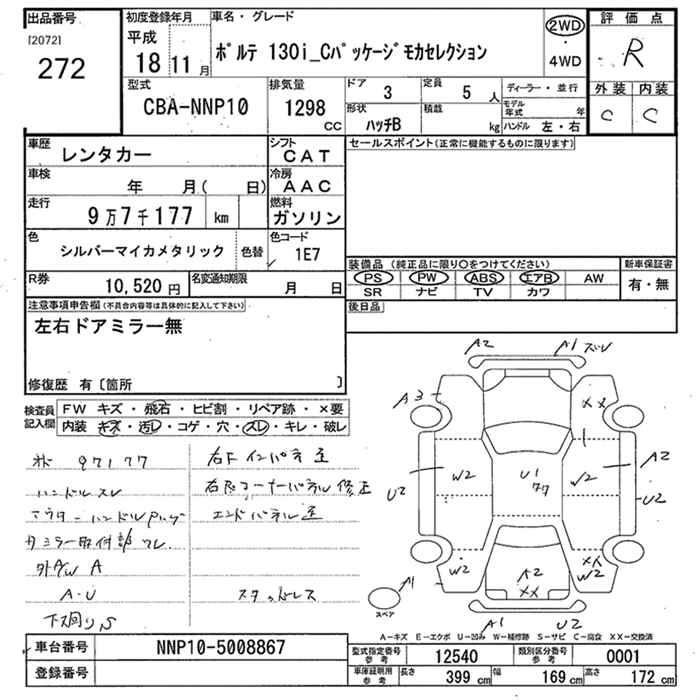 出品番号
[2072]
272
初度登録年月
平成
18年11月
車名・グレード
ポルテ 130i_Cパッケージ モカセレクション
2WD
4WD
評価点
R
外装 内装
C C
型式
CBA-NNP10
排気量
1298
CC
ドア
3
定員
5 人
ディーラー・並行
モデル年式 年
形状
ハッチB
積載
kg
ハンドル 左・右
車歴
レンタカー
シフト
CAT
セールスポイント(正常に機能するものに限ります)
車検
年 月( 日)
冷房
AAC
走行
9万7千177 km
燃料
ガソリン
色
シルバーマイカメタリック
色替
色コード
1E7
装備品 (純正品に限り○をつけてください)
新車保証書
PS PW ABS エアB AW
有・無
SR ナビ TV カワ
R券
10,520円
名変通知期限
月 日
後日品
注意事項申告欄(不具合内容等は具体的に記入して下さい)
左右ドアミラー無
修復歴 有〔箇所 〕
検査員記入欄
FW キズ・飛石・ヒビ割・リペア跡・×要
内装 キズ・汚レ・コゲ・穴・スレ・キレ・破レ
97177
右F インパネ 歪
ハンドルスレ
右Rコーナーパネル修正
エンドパネル歪
外A/W A
A・U
スタッドレス
下廻りS
A2
A1
ズレ
A3
XX
W2
U1
W2
A2
U2
U2
W2
A2
XX
XX
W2
A1
スペア
A1
U2
A-キズ E-エクボ U-凹み W-補修跡 S-サビ C-腐食 XX-交換済
車台番号
NNP10-5008867
登録番号
型式指定番号 参考
12540
類別区分番号 参考
0001
車庫証明用 参考
長さ 399 cm
幅 169 cm
高さ 172 cm